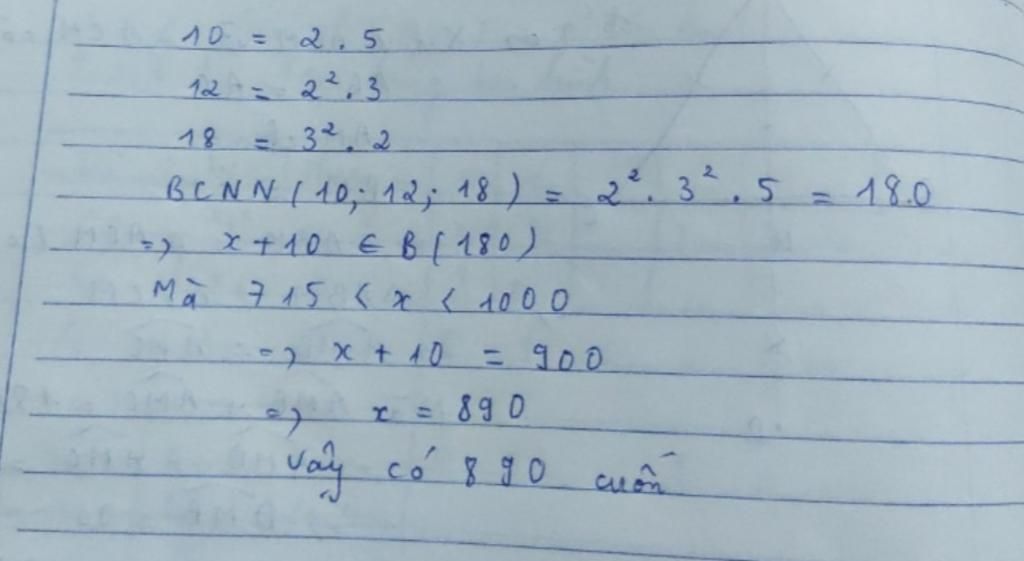 10 = 2 . 5
12 = 2² . 3
18 = 3² . 2
BCNN (10; 12; 18) = 2² . 3² . 5 = 18.0
=> x + 10 ∈ B (180)
Mà 715 < x < 1000
=> x + 10 = 900
=> x = 890
Vậy có 890 cuốn